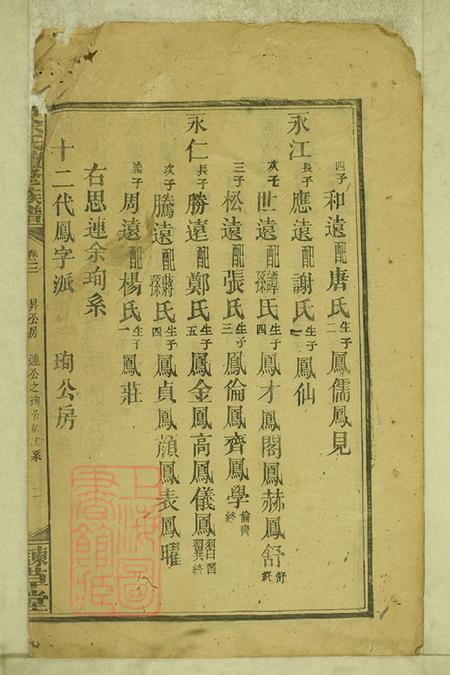 四子和遠配唐氏生子二鳳儒鳳見
永江長子應遠配謝氏生子一鳳仙
次子世遠配譚孫氏生子四鳳才鳳閣鳳赫鳳舒舒終
三子松遠配張氏生子三鳳倫鳳齊鳳學倫齊終
永仁長子勝遠配鄭氏生子五鳳金鳳高鳳儀鳳
次子騰遠配蔣孫氏生子四鳳貞鳳顏鳳表鳳曜
義子周遠配楊氏生子一鳳莊
右思連余珣系
十二代鳳字派 珣公房
卷三 昇公房
上海圖書館藏